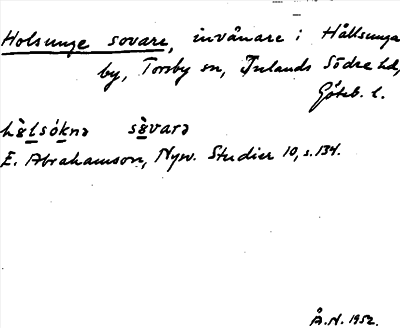 Holsunge sovare, invånare i Hållsunga
by, Torsby sn, Inlands Södre hd,
Göteb. l.
hòlsóknə sòvarə
E. Abrahamson, Nyv. Studier 10, s. 134.
Å.N. 1952.